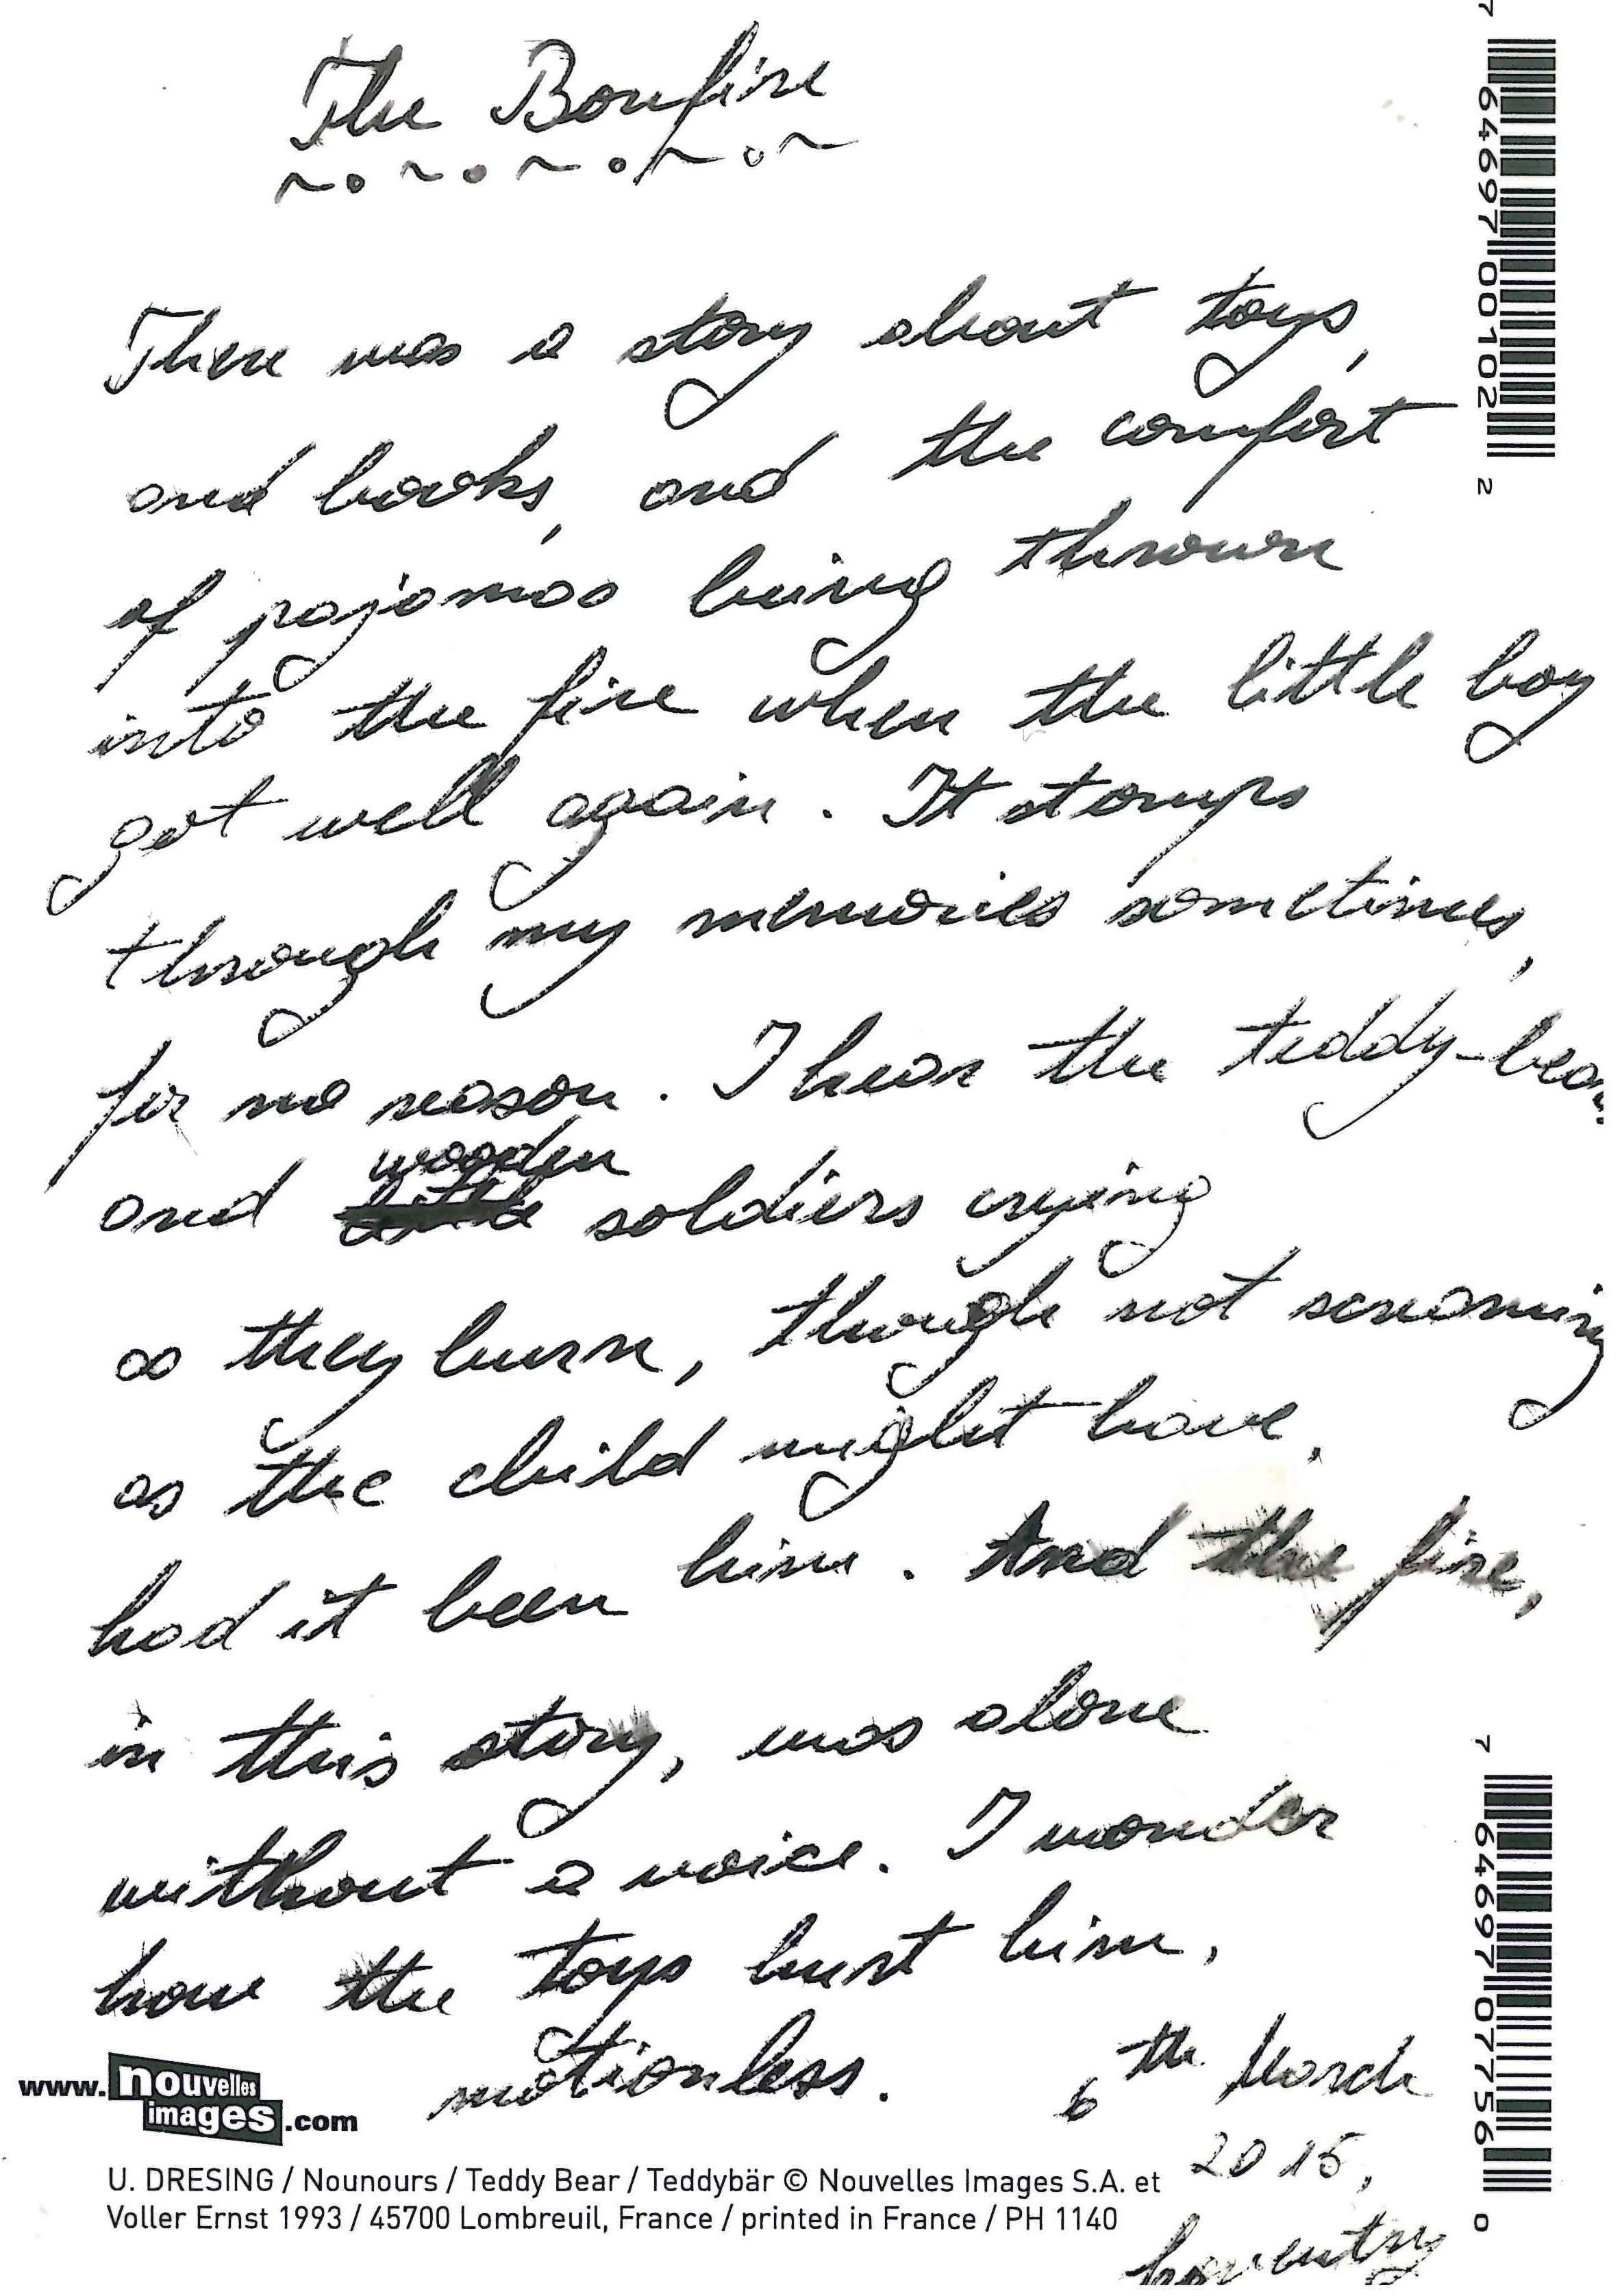 The Bonfire
~ o ~ o ~ o ~ o ~
There was a story about toys,
and books, and the comfort
of pajamas being thrown
into the fire when the little boy
got well again. It stomps
through my memories sometimes,
for no reason. I hear the teddy-bear
wooden
and little soldiers crying
as they burn, though not screaming
as the child might have,
had it been him. And the fire,
in this story, was alone
without a voice. I wonder
how the toys hurt him,
motionless.
6th March
2015,
Coventry
www.nouvelles images.com
U. DRESING / Nounours / Teddy Bear / Teddybär © Nouvelles Images S.A. et
Voller Ernst 1993 / 45700 Lombreuil, France / printed in France / PH 1140
7 64697 00102 2
7 64697 07756 0